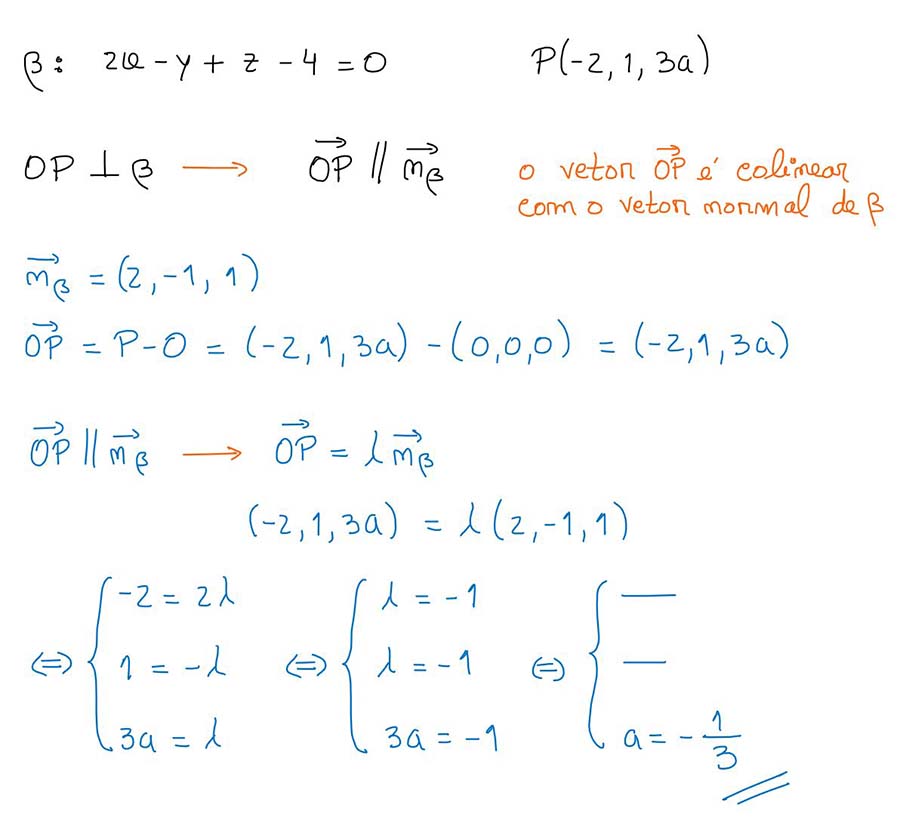 β: 2x - y + z - 4 = 0 P(-2, 1, 3a)
OP ⊥ β ⟶ OP⃗ ∥ n⃗β o vetor OP⃗ é colinear
com o vetor normal de β
n⃗β = (2, -1, 1)
OP⃗ = P - O = (-2, 1, 3a) - (0,0,0) = (-2,1,3a)
OP⃗ ∥ n⃗β ⟶ OP⃗ = λn⃗β
(-2,1,3a) = λ(2,-1,1)
-2 = 2λ λ = -1 —
⇔ { 1 = -λ ⇔ { λ = -1 ⇔ { —
3a = λ 3a = -1 a = -1/3